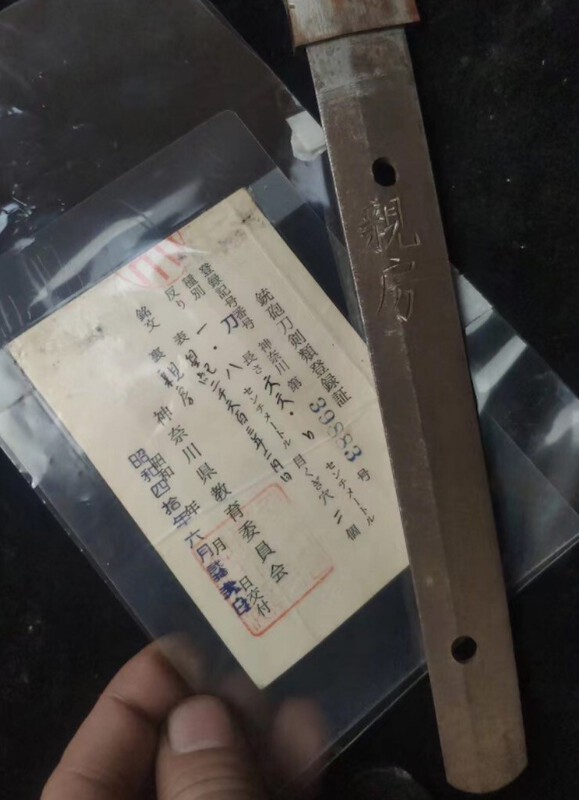 銃砲刀剣類登録証
登録記号番号 神奈川 第 号
種別 刀 長さ 六六・ センチメートル
反り 一・八 センチメートル 目くぎ穴 二 個
銘文 表 皇紀二千六百三年二月日
裏 親房
神奈川県教育委員会
昭和四拾年六月 日交付
親房